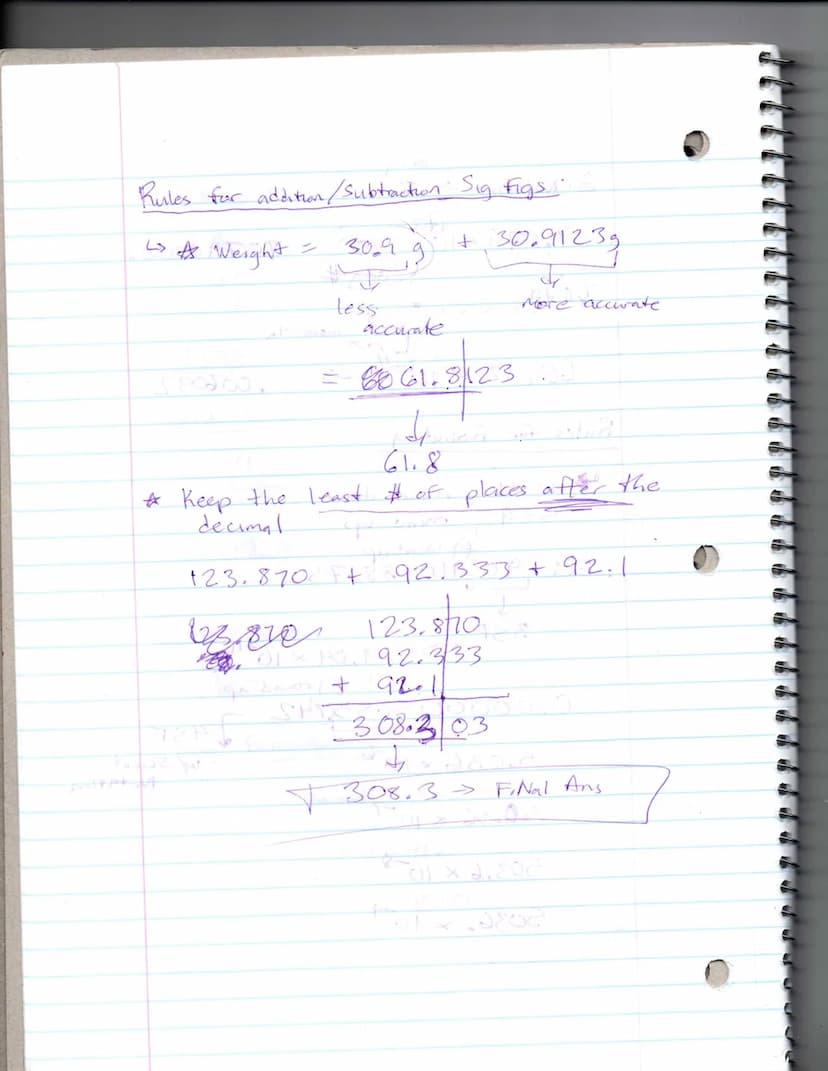 Rules for addition/Subtraction Sig Figs:
↳ ☆ Weight = 30.9 g + 30.9123g
less accurate
more accurate
= 61.8|123
↓
61.8
☆ Keep the least # of places after the
decimal
123.870 + 92.333 + 92.1
123.870 123.870
92.333
+ 92.1
308.303
↓
308.3 → Final Ans